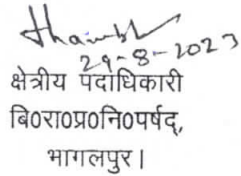 29-8-2023
क्षेत्रीय पदाधिकारी
बि०रा०प्र०नि०पर्षद्,
भागलपुर।